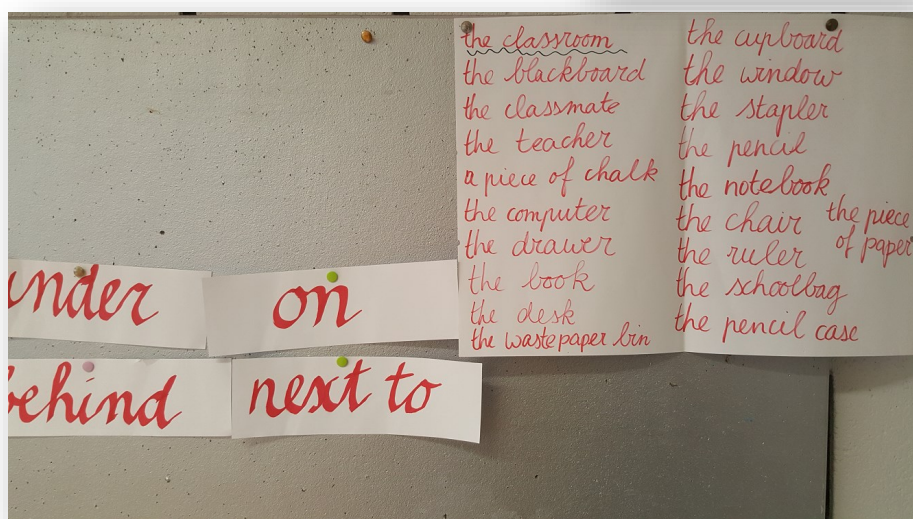 the classroom
the blackboard
the classmate
the teacher
a piece of chalk
the computer
the drawer
the book
the desk
the wastepaper bin
the cupboard
the window
the stapler
the pencil
the notebook
the chair
the ruler
the schoolbag
the pencil case
the piece
of paper
under
on
behind
next to